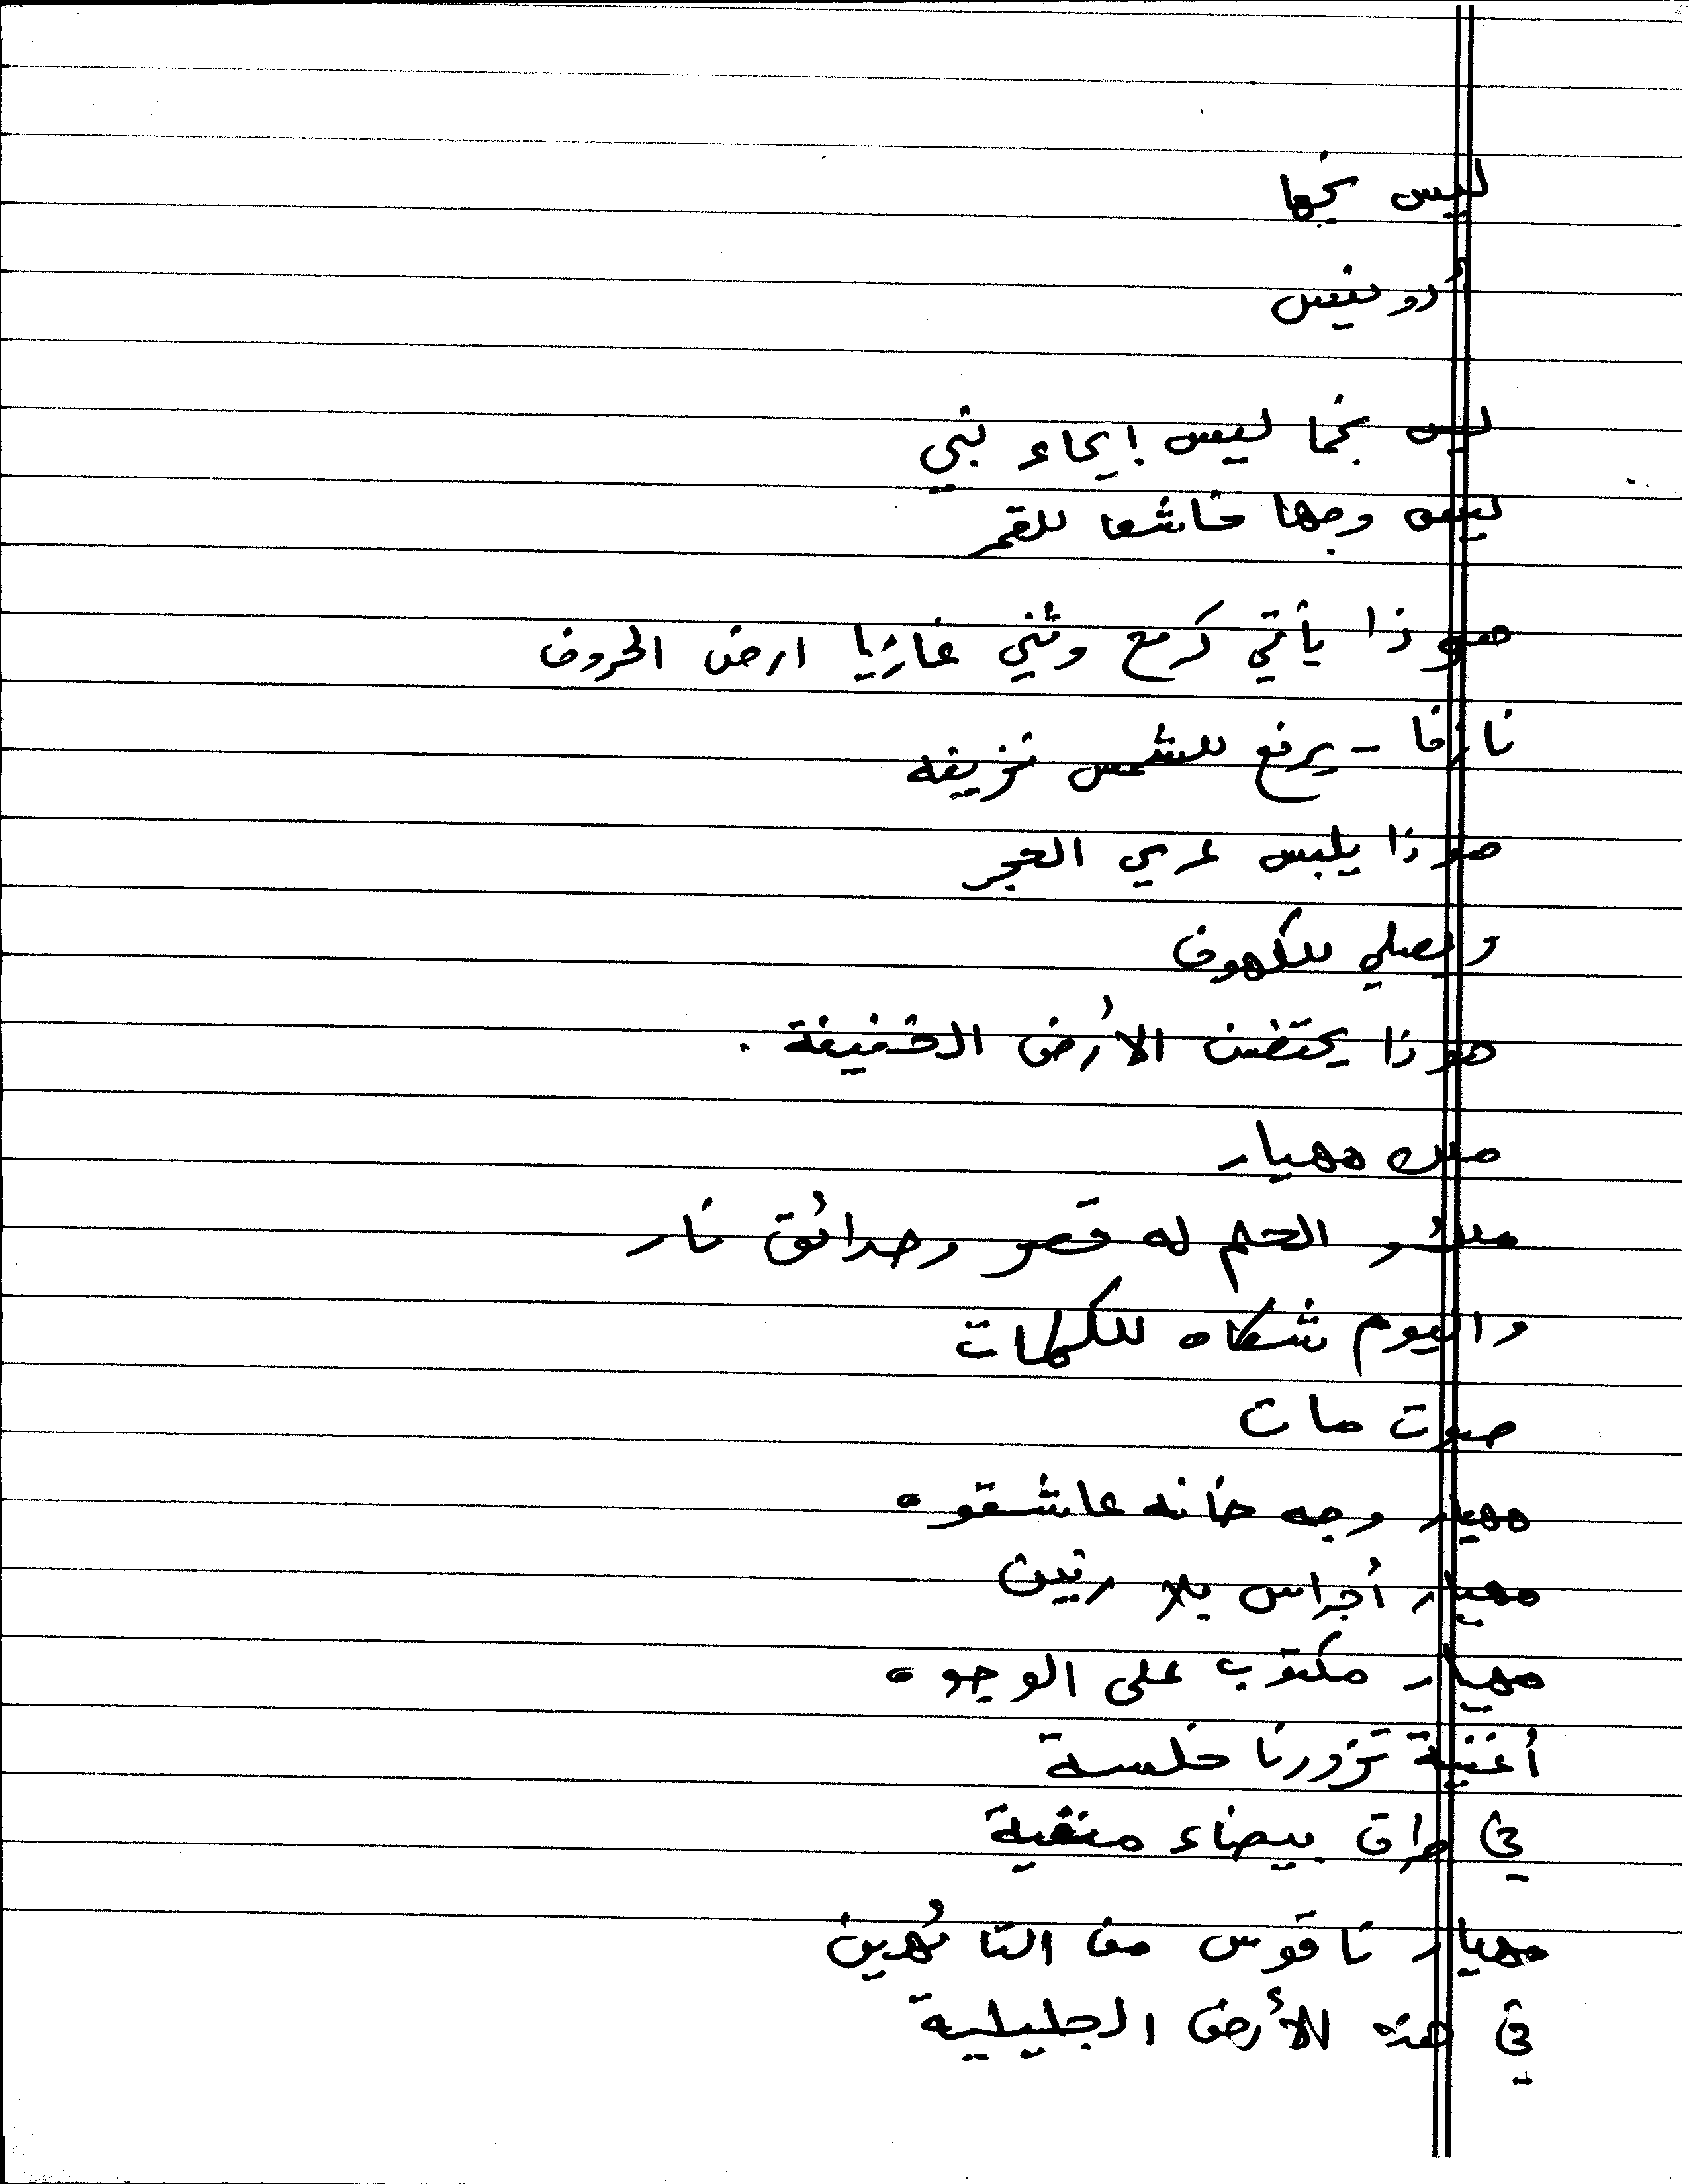 ليس نجما
أدونيس
ليس نجما ليس إيحاء نبي
ليس وجها خاشعا للقمر
هو ذا يأتي كرمح وثني غازيا ارض الحروف
نازفا - يرفع للشمس نزيفه
هو ذا يلبس عري الحجر
ويصلي للكهوف
هو ذا يحتضن الأرض الخفيفة.
ملك مهيار
ملك و الحلم له قصر وحدائق نار
واليوم شكاه للكلمات
صوت مات
مهيار وجه خانه عاشقوه
مهيار أجراس بلا رنين
مهيار مكتوب على الوجوه
أغنية تزورنا خلسة
في طرق بيضاء منفية
مهيار ناقوس من التائهين
في هذه الأرض الجليلية